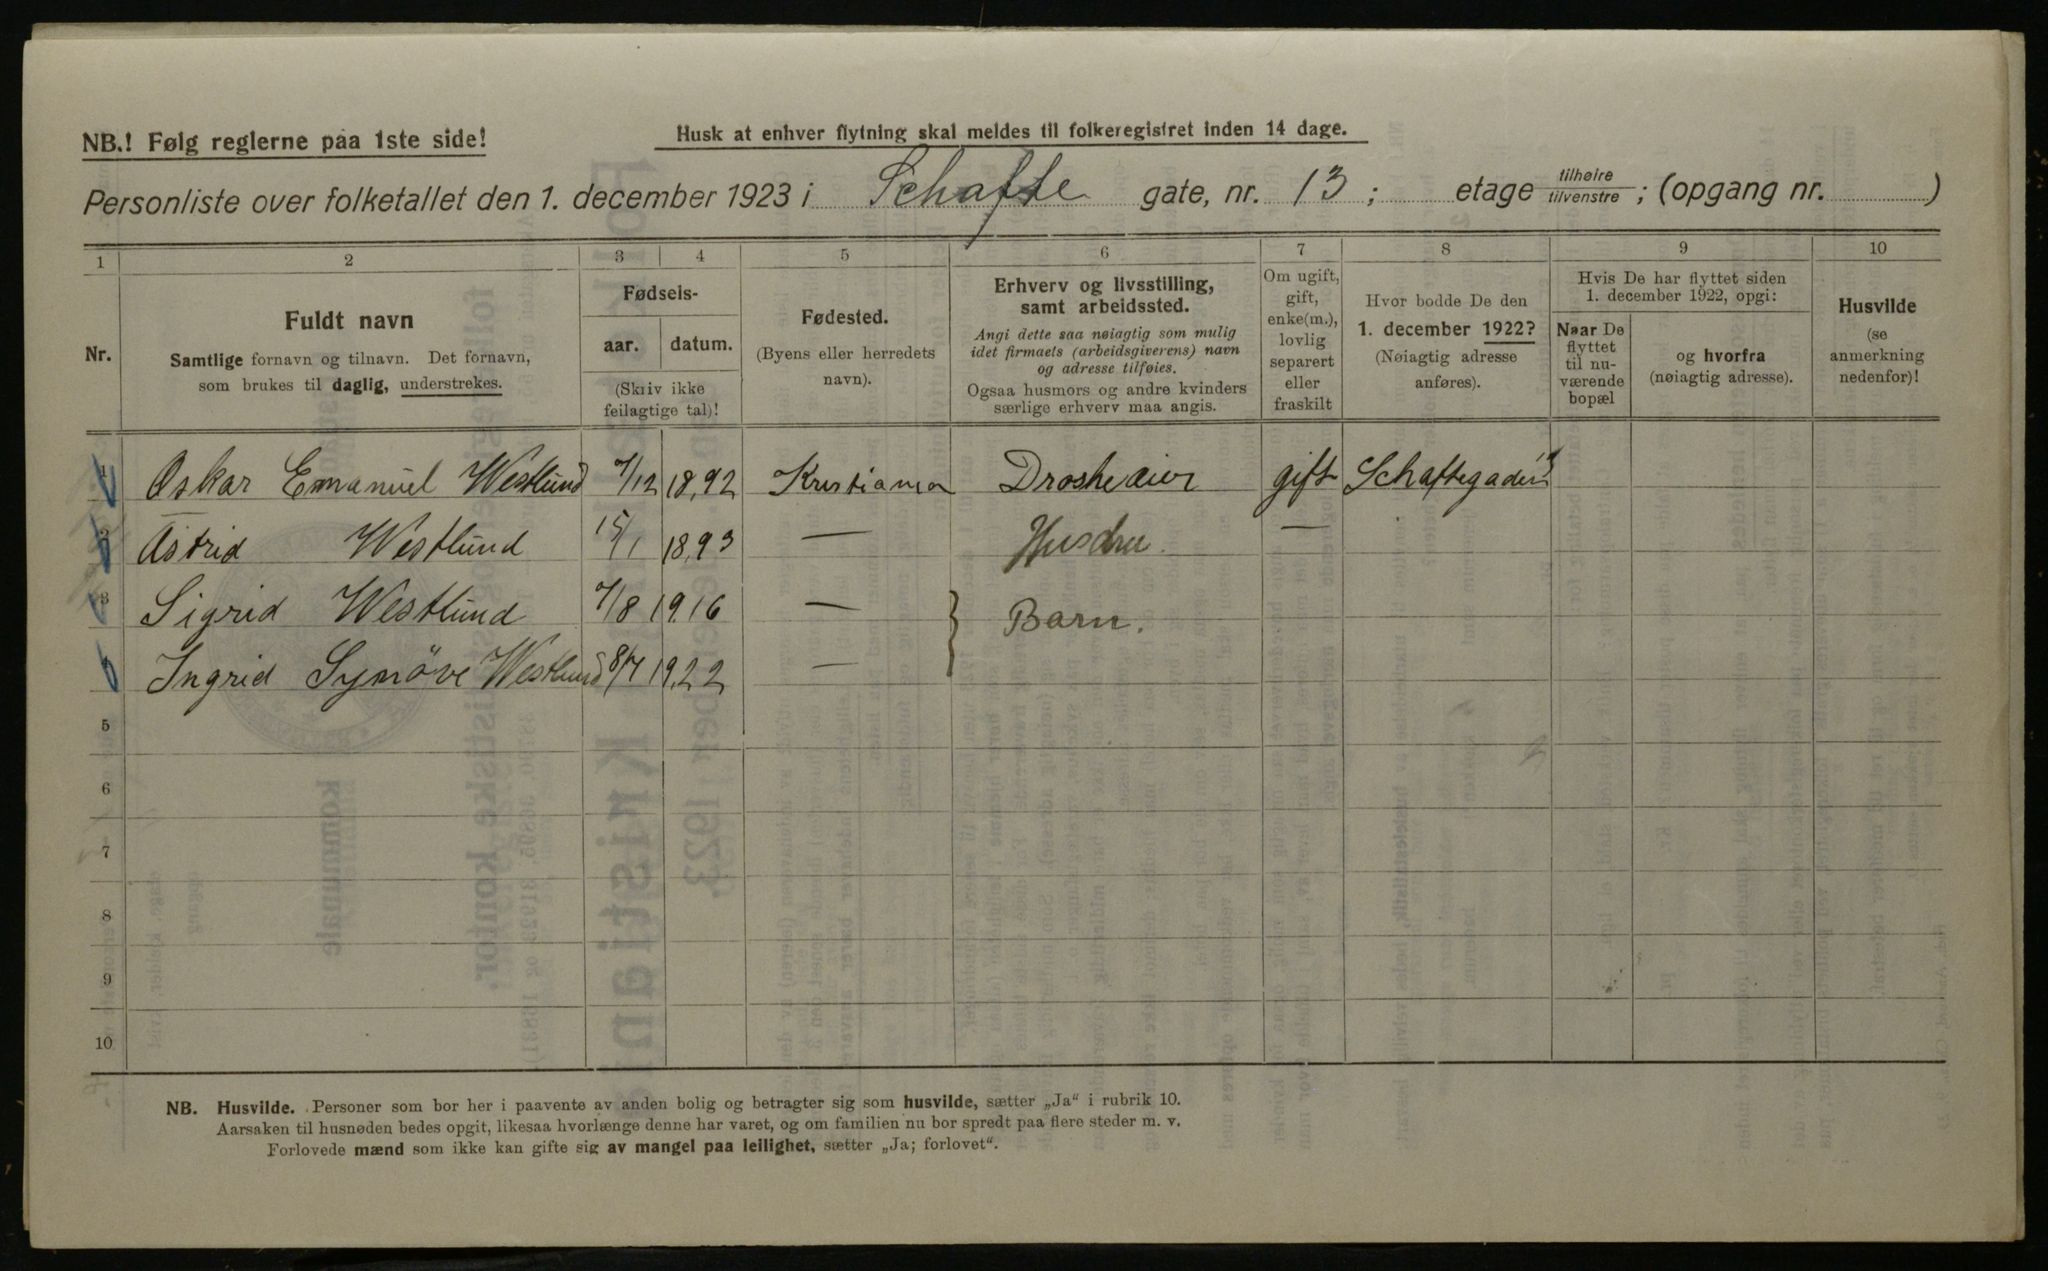 NB.! Følg reglerne paa 1ste side!
Husk at enhver flytning skal meldes til folkeregistret inden 14 dage.
Personliste over folketallet den 1. december 1923 i Schafte gate, nr. 13; etage tilhøire tilvenstre; (opgang nr. )
1 2 3 4 5 6 7 8 9 10
Nr.
Fuldt navn
Samtlige fornavn og tilnavn. Det fornavn,
som brukes til daglig, understrekes.
Fødsels-
aar. datum.
(Skriv ikke
feilagtige tal)!
Fødested.
(Byens eller herredets
navn).
Erhverv og livsstilling,
samt arbeidssted.
Angi dette saa nøiagtig som mulig
idet firmaets (arbeidsgiverens) navn
og adresse tilføies.
Ogsaa husmors og andre kvinders
særlige erhverv maa angis.
Om ugift,
gift,
enke(m.),
lovlig
separert
eller
fraskilt
Hvor bodde De den
1. december 1922?
(Nøiagtig adresse
anføres).
Hvis De har flyttet siden
1. december 1922, opgi:
Naar De
flyttet
til nu-
værende
bopæl
og hvorfra
(nøiagtig adresse).
Husvilde
(se
anmerkning
nedenfor)!
1 Oskar Emanuel Westlund 7/12 1892 Kristiania gift
2 Astrid Westlund 15/1 1893 — —
3 Sigrid Westlund 7/8 1916 — } Barn.
4 Ingrid Synöve Westlund 8/7 1922 —
5
6
7
8
9
10
NB. Husvilde. Personer som bor her i paavente av anden bolig og betragter sig som husvilde, sætter „Ja“ i rubrik 10.
Aarsaken til husnøden bedes opgit, likesaa hvorlænge denne har varet, og om familien nu bor spredt paa flere steder m. v.
Forlovede mænd som ikke kan gifte sig av mangel paa leilighet, sætter „Ja; forlovet“.